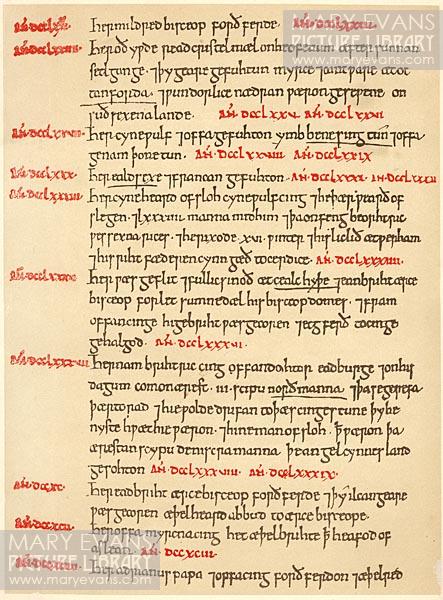 MARY EVANS
PICTURE LIBRARY
www.maryevans.com
her mildred bisceop forð ferde.
AN·DCCLXXIIII· her oð yƿde read cristel mæl on heofenum æfter sunnan
setlgange· ⁊ þy geare gefuhtun myrce ⁊ cantƿare æt ot
tanforda· ⁊ ƿundorlice nædran ƿæron geseƿene on
suðsexena lande· AN·DCCLXXV AN·DCCLXXVI
AN·DCCLXXVII· her cyneƿulf ⁊ offa gefuhton ymb benesing tun ⁊ offa
genam þone tun· AN·DCCLXXVIII AN·DCCLXXIX
her ealdsexe ⁊ francan gefuhton· AN·DCCLXXXI· AN·DCCLXXXII
her cyneheard ofsloh cyneƿulf cing ⁊ he þær ƿeard of
slegen· ⁊ LXXXIIII manna mid him ⁊ þa onfeng beorhtric
ƿessexna rices· ⁊ he rixode ·XVI· ƿinter ⁊ his lic lið æt ƿerham
⁊ his riht fæderen cynn gæð to cerdice· AN·DCCLXXXIIII·
AN·DCCLXXXV· her ƿæs geflit ⁊ fullic sinoð æt cealc hyþe ⁊ eanbriht arce
bisceop forlet sumne dæl his bisceopdomes· ⁊ fram
offan cinge higebriht ƿæs gecoren ⁊ ecgferð to cinge
gehalgod· AN·DCCLXXXVI·
AN·DCCLXXXVII· her nam brihtric cing offan dohtor eadburge ⁊ on his
dagum comon ærest ·III· scipu norðmanna ⁊ þa se gerefa
þærto rad ⁊ hie ƿolde drifan to þæs cinges tune þy he
nyste hƿæt hie ƿæron· ⁊ hine man ofsloh· ꝥ ƿæron þa
ærestan scypu deniscra manna þe angelcynnes land
gesohton AN·DCCLXXXVIII· AN·DCCLXXXIX·
AN·DCCXC· her eadbriht arcebisceop forð ferde ⁊ þy ilcan geare
ƿæs gecoren æþelheard abbud to arcebisceope·
AN·DCCXCII· her offa myrcna cing het æþelbrihte ꝥ heafod of
aslean· AN·DCCXCIII·
her adrianus papa ⁊ offa cing forð ferdon ⁊ æþelred
MARY EVANS
PICTURE LIBRARY
www.maryevans.com